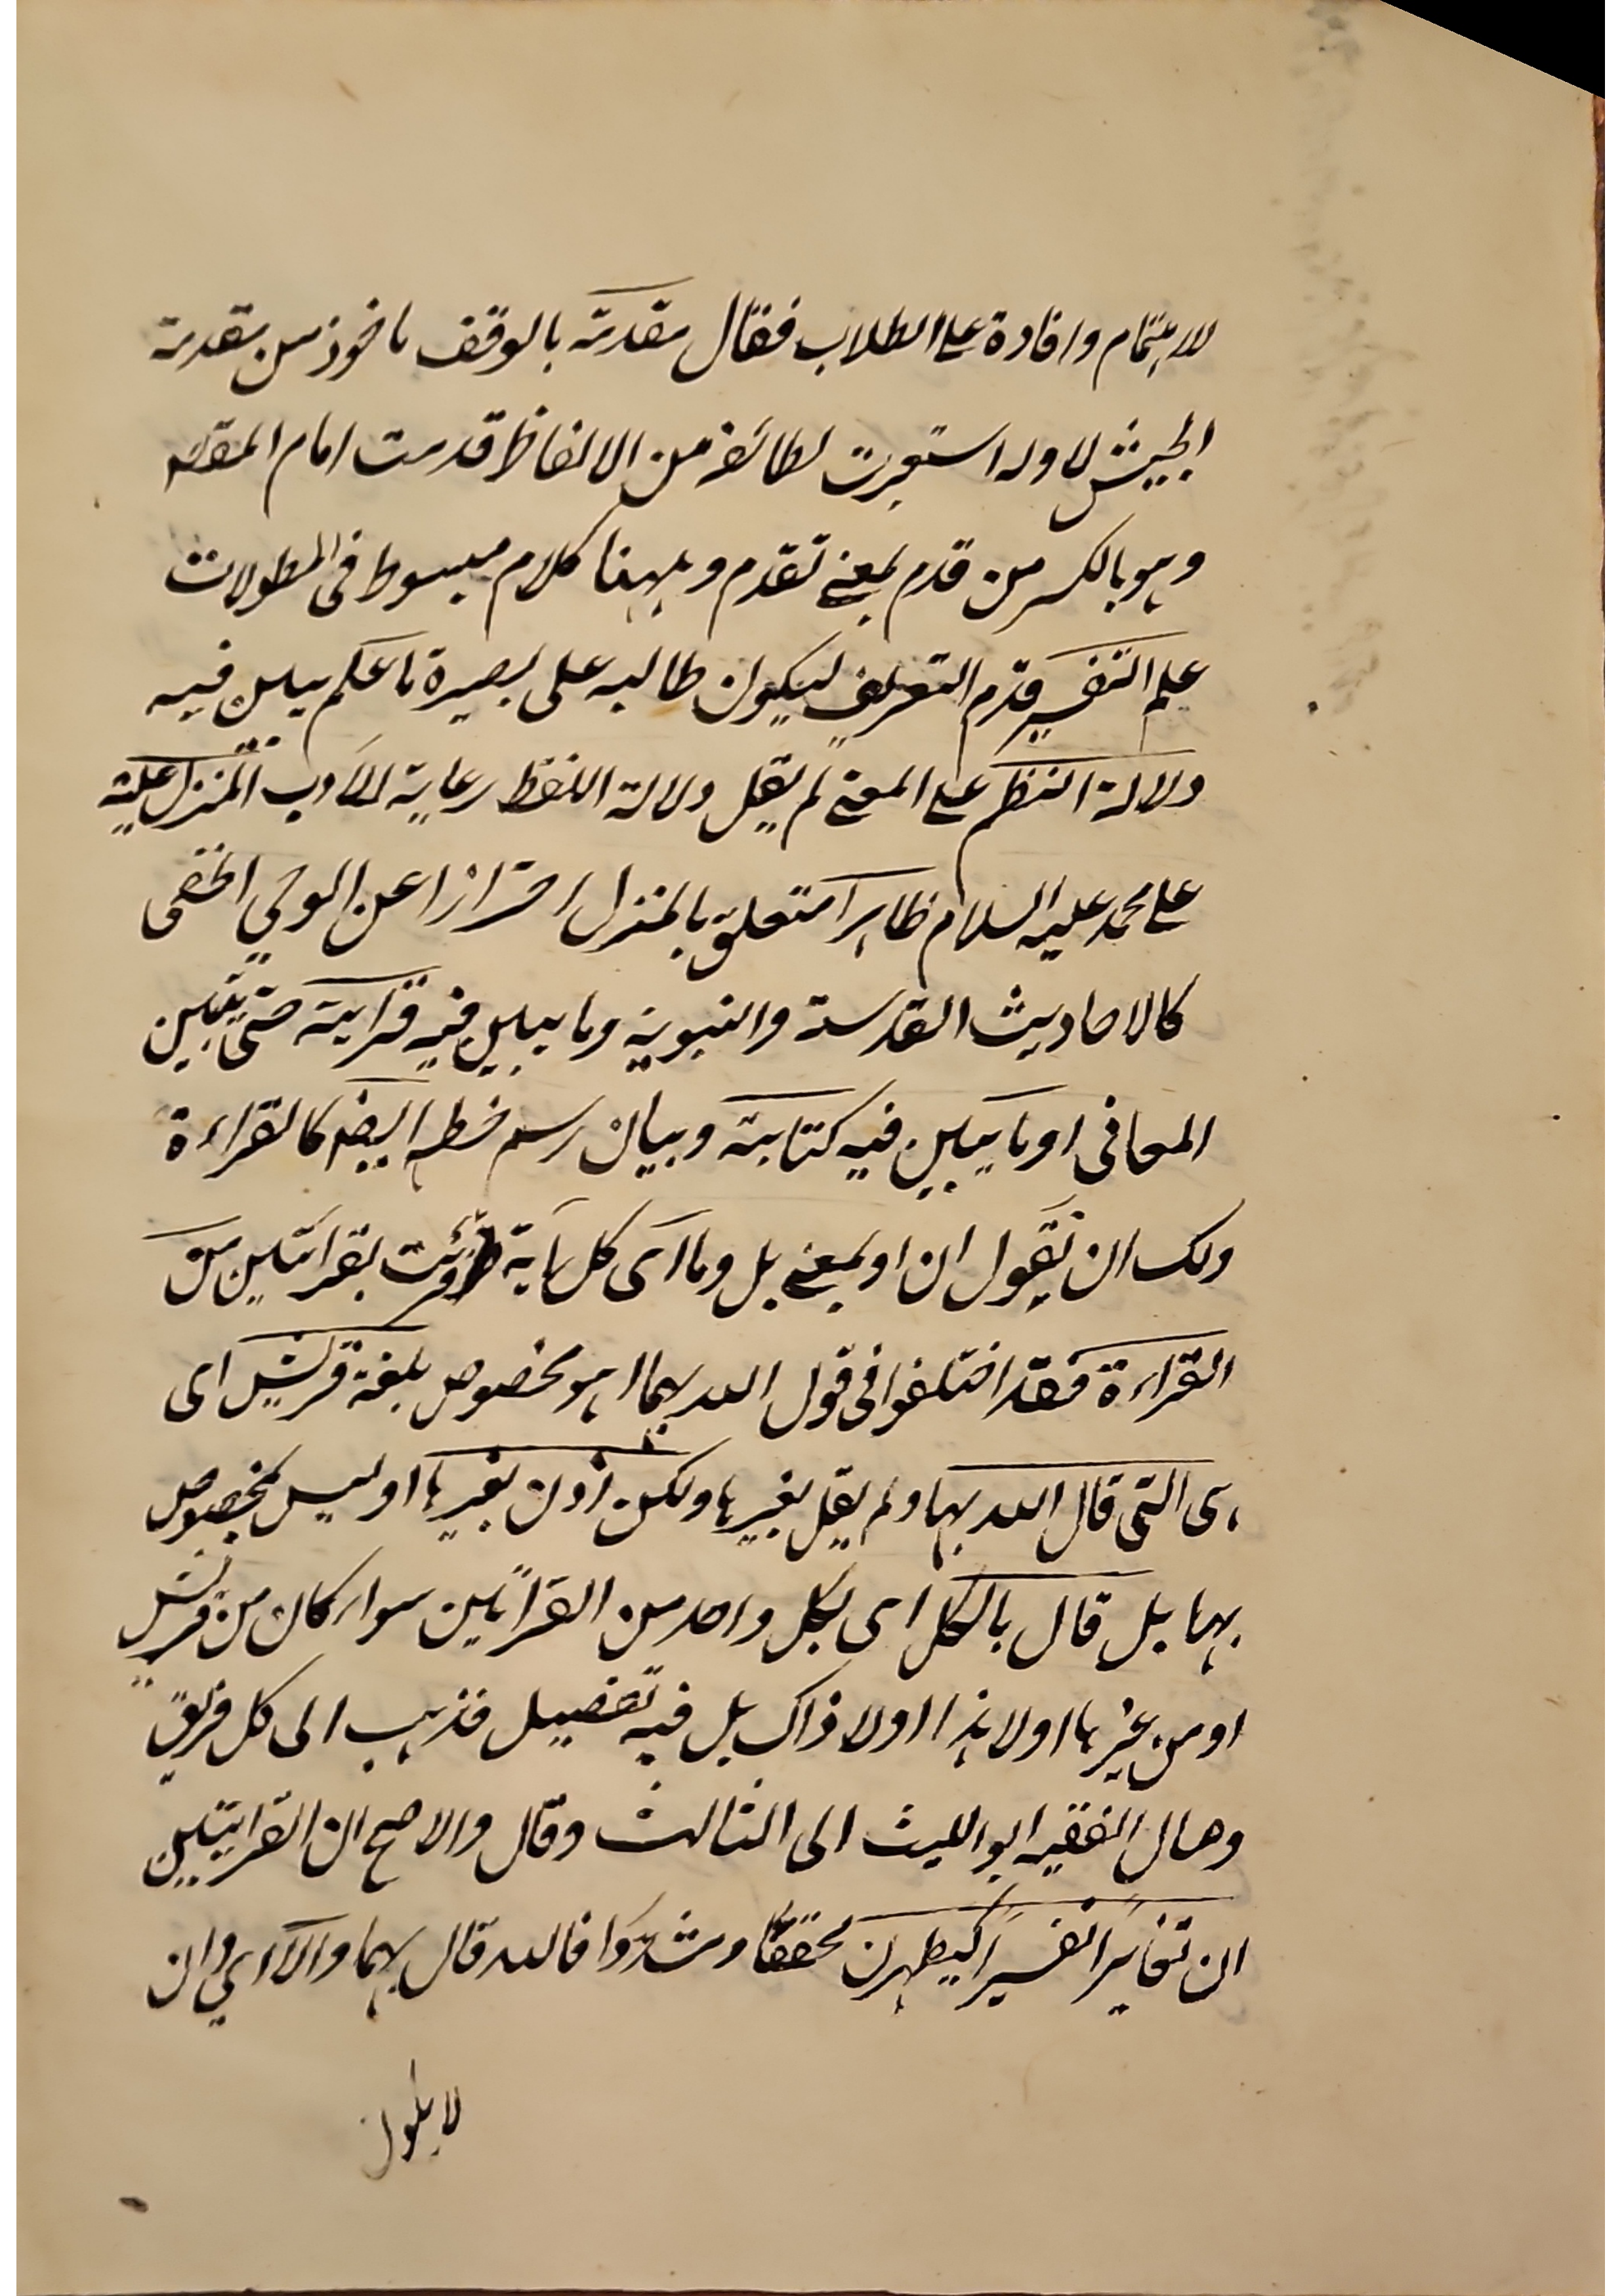 للاهتمام وافادة على الطلاب فقال مقدمة بالوقف ماخوذ من مقدمة
الجيش لاوله استعيرت لطائفة من الالفاظ قدمت امام المقصد
وهو بالكسر من قدم بمعنى تقدم وههنا كلام مبسوط فى المطولات
علم التفسير قدم التعريف ليكون طالبه على بصيرة ما علم يبين فيه
دلالة النظم على المعنى لم يقل دلالة اللفظ رعاية للادب المنزل عليه
على محمد عليه السلام ظاهرا متعلق بالمنزل احترازا عن الوحي الخفى
كالاحاديث القدسية والنبوية وما يبين فيه قرايته حتى يتبين
المعانى او ما يبين فيه كتابته وبيان رسم خطه ايضا كالقراءة
ولك ان تقول ان او بمعنى بل وما اى كل اية قرئت بقرائتين من
القراءة فقد اختلفوا فى قول الله بهما اهو مخصوص بلغة قريش اى
هى التى قال الله بها ولم يقل بغيرها ولكن اذن بغيرها او ليس بمخصوص
بها بل قال بالكل اى بكل واحد من القرائتين سواء كان من قريش
او من غيرها اولا هذا اولا ذاك بل فيه تفصيل فذهب الى كل فريق
ومال الفقيه ابو الليث الى الثالث وقال والاصح ان القرايتين
ان تغايرا تفسيرا كيطهرن مخففا ومشددا فالله قال بهما والا اى وان
لا يكون